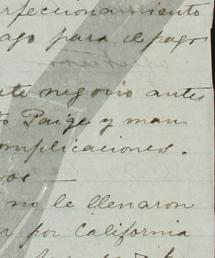 rfeccionamiento
ago para el pago
te negocio antes
o Paige y man
mplicaciones.
os —
no le llenaron
r por California